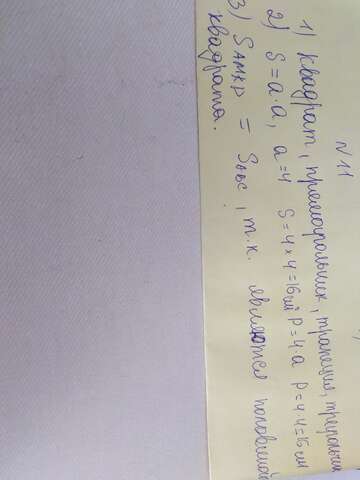 N 11
1) Квадрат, прямоугольник, трапеция, треугольник
2) S = a · a, a = 4 S = 4 × 4 = 16 см² P = 4 · a P = 4 · 4 = 16 см
3) SAMKD = SABC, т.к. являются половиной
квадрата.